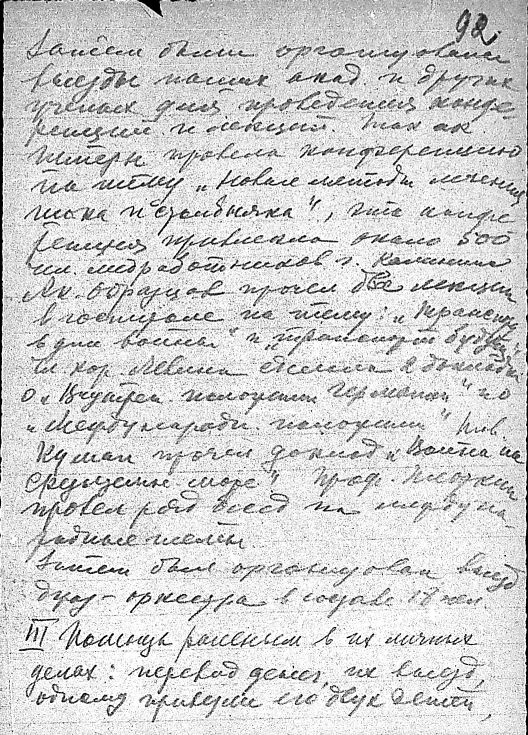 92
Затем были организованы
выезды наших акад. и других
ученых для проведения конфе-
ренций и лекций. Так ак.
Штерн провела конференцию
на тему „Новые методы лечения
шока и столбняка", эта конфе
ренция привлекла около 500
чел. медработников г. Калинина
Ак. Образцов прочел две лекции
в госпитале на тему: „Транспорт
в дни войны" и „транспорт будущ"
Чл. кор. Левина сделала 2 доклада
о „Внутрен. положении Германии" и о
„Международн. положении"
Кулман прочел доклад „Война на
Средиземн. море" Проф.
провел ряд бесед на междуна-
родные темы
Затем был организован выезд
духо-оркестра в составе 18 чел.
III Помощь раненым в их личных
делах: перевод денег, их выезд,
одному привезли его двух детей,